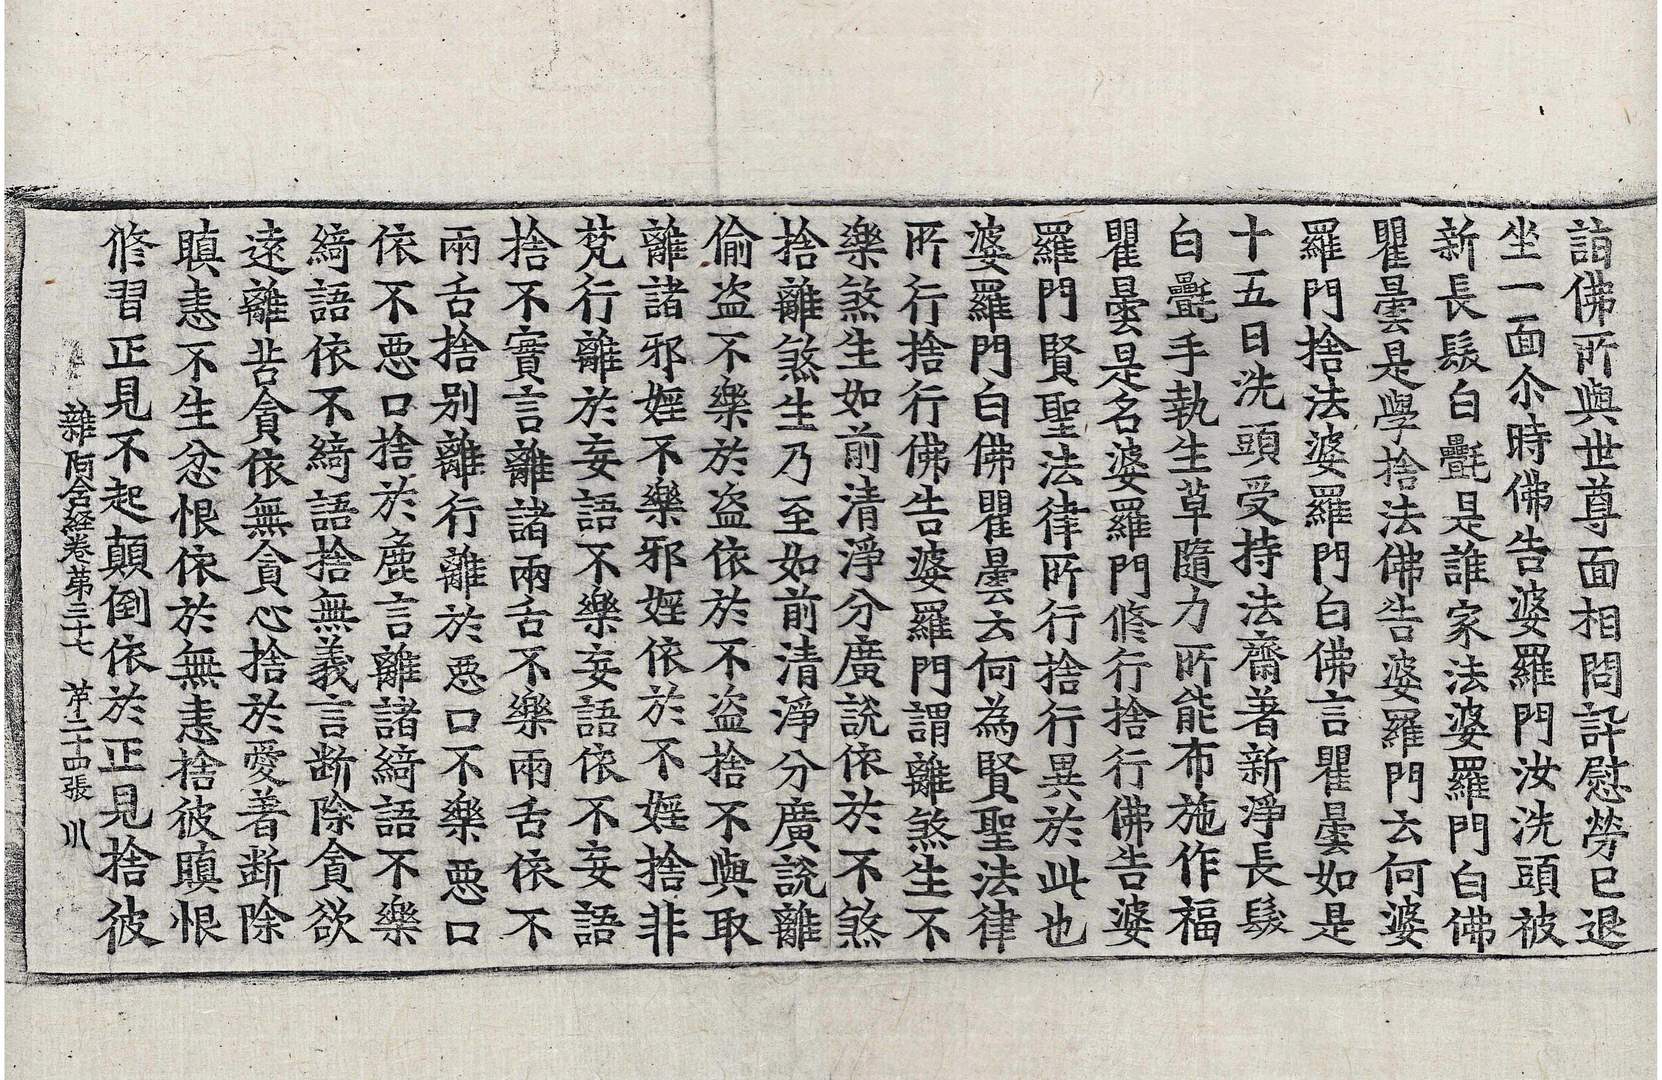 詣佛所與世尊面相問訊慰勞已退
坐一面尒時佛告婆羅門汝洗頭被
新長髮白氎是誰家法婆羅門白佛
瞿曇是學捨法佛告婆羅門云何婆
羅門捨法婆羅門白佛言瞿曇如是
十五日洗頭受持法齋著新淨長髮
白氎手執生草隨力所能布施作福
瞿曇是名婆羅門修行捨行佛告婆
羅門賢聖法律所行捨行異於此也
婆羅門白佛瞿曇云何為賢聖法律
所行捨行佛告婆羅門謂離煞生不
樂煞生如前清淨分廣說依於不煞
捨離煞生乃至如前清淨分廣說離
偷盗不樂於盗依於不盗捨不與取
離諸邪婬不樂邪婬依於不婬捨非
梵行離於妄語不樂妄語依不妄語
捨不實言離諸兩舌不樂兩舌依不
兩舌捨別離行離於惡口不樂惡口
依不惡口捨於麁言離諸綺語不樂
綺語依不綺語捨無義言断除貪欲
遠離苦貪依無貪心捨於愛著断除
瞋恚不生忿恨依於無恚捨彼瞋恨
修習正見不起顛倒依於正見捨彼
雜阿含経卷第三十七 苐二十四張 川